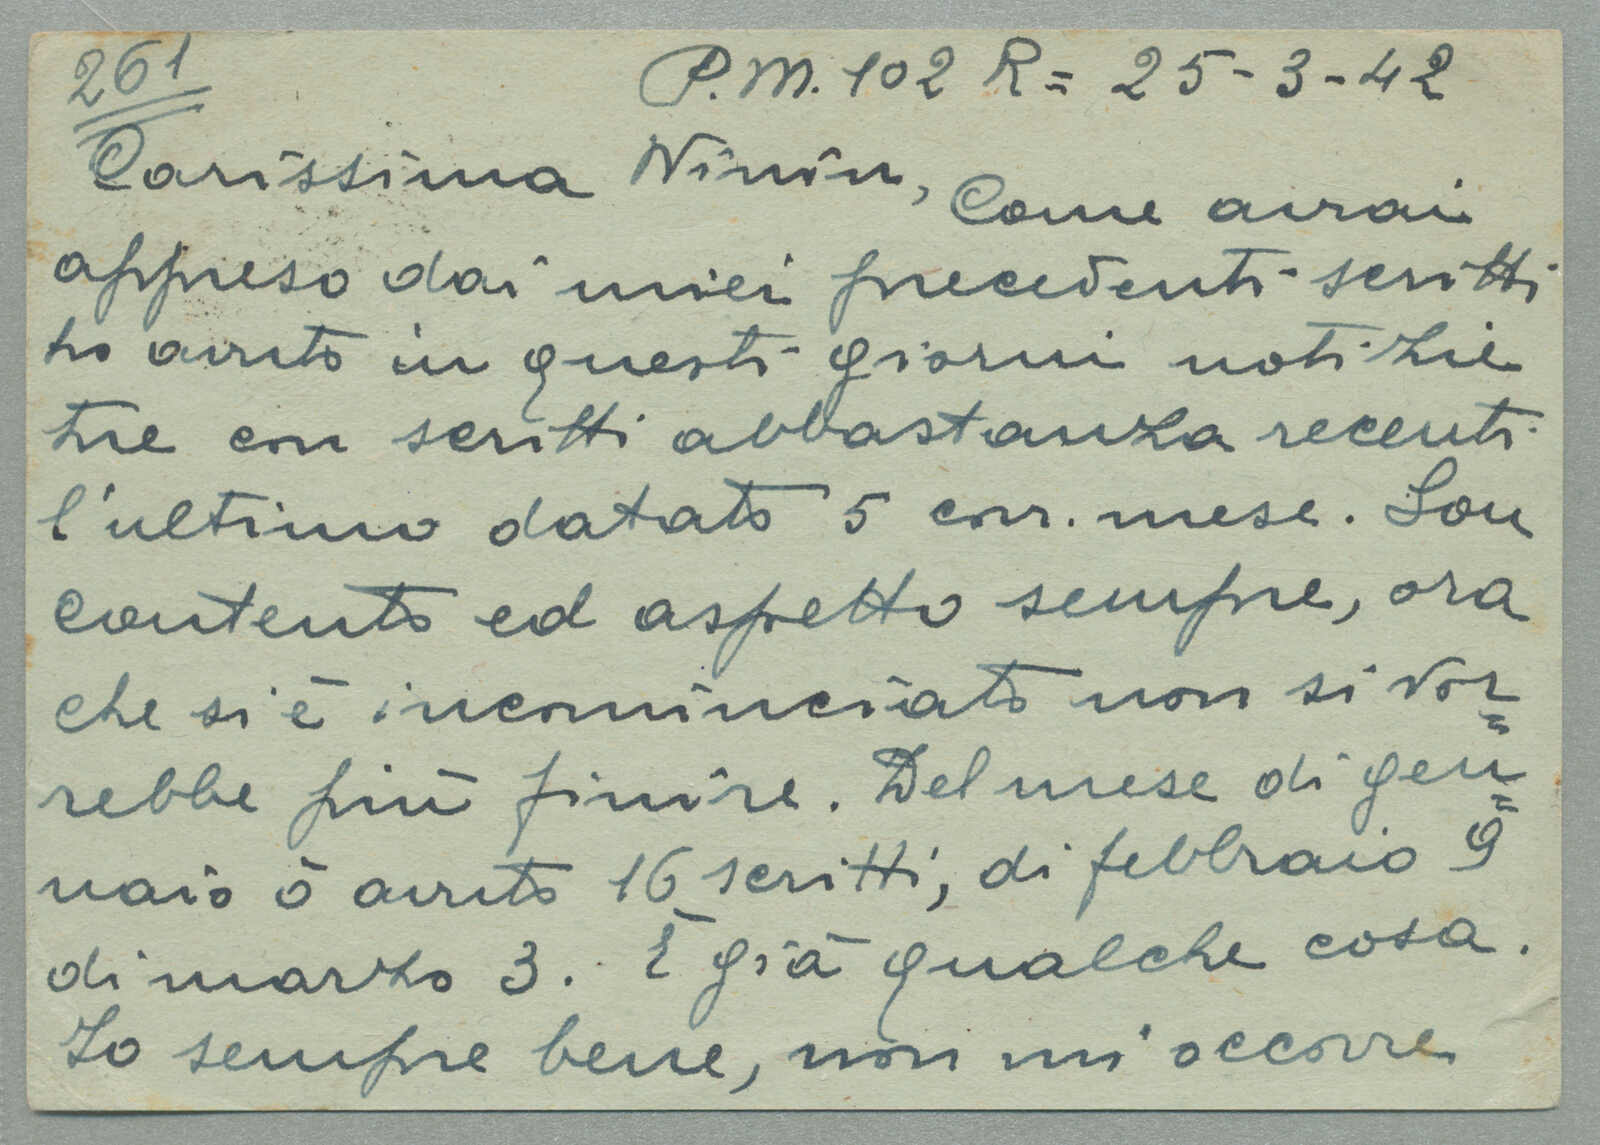 261
P.M. 102 R= 25-3-42
Carissima Ninin, Come avrai
appreso dai miei precedenti scritti
ho avuto in questi giorni noti zie
tue con scritti abbastanza recenti
l'ultimo datato 5 corr. mese. Son
contento ed aspetto sempre, ora
che si è incominciato non si vor=
rebbe più finire. Del mese di gen=
naio ò avuto 16 scritti, di febbraio 9
di marzo 3. È già qualche cosa.
Io sempre bene, non mi occorre